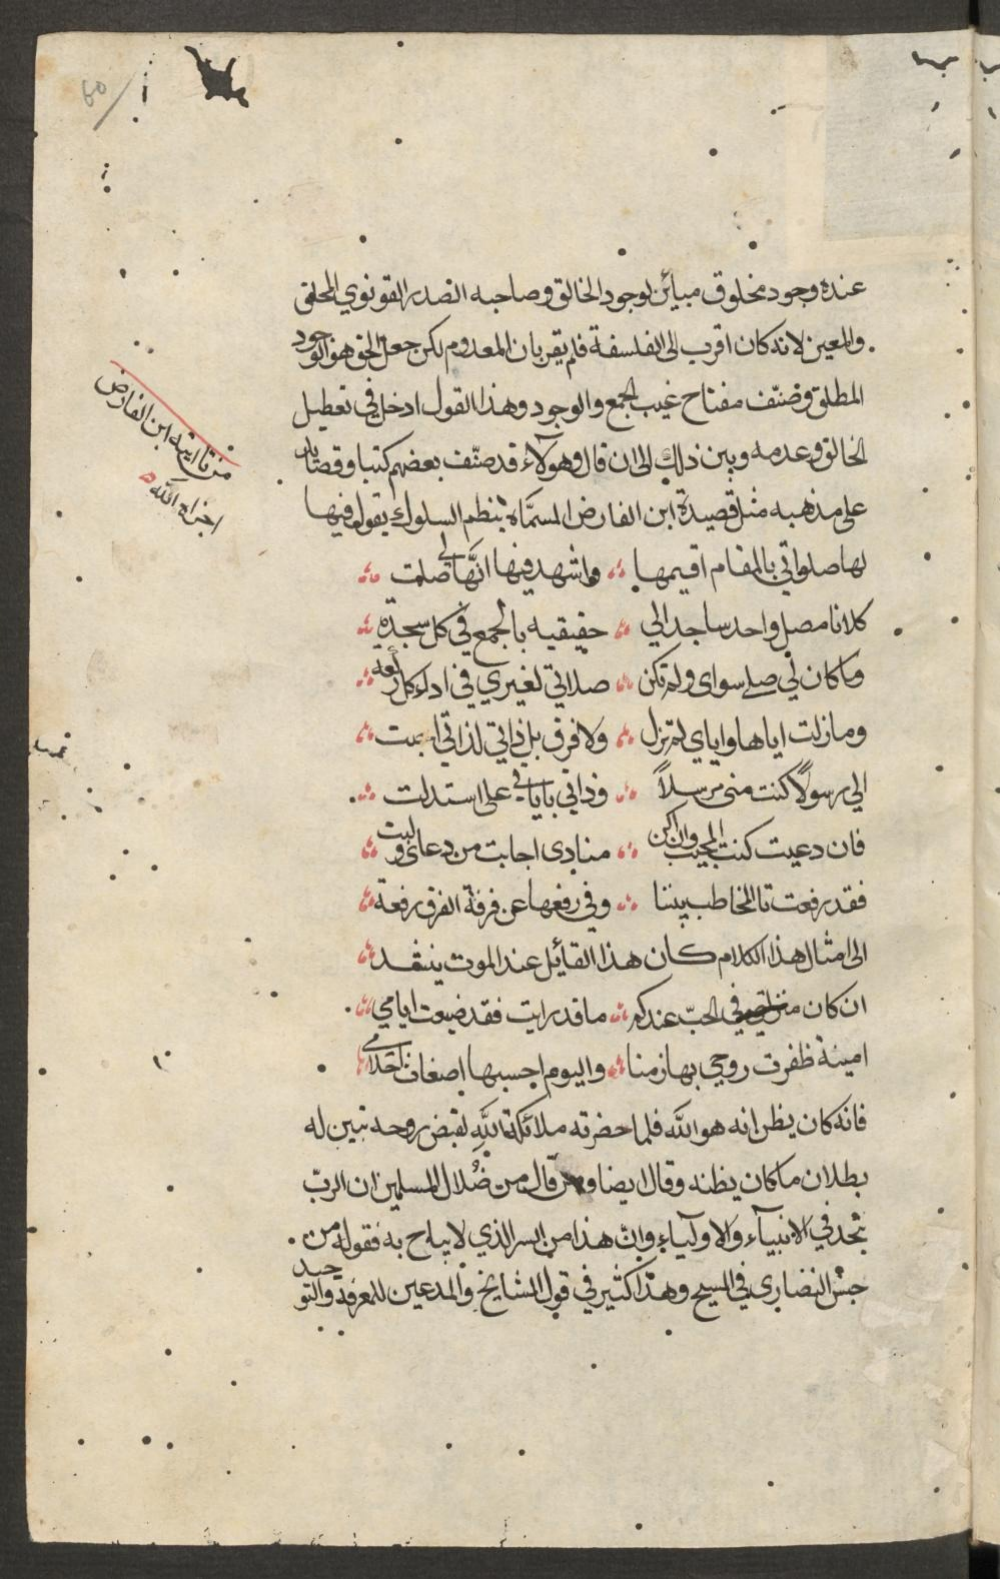 عنده وجود مخلوق مبائن لوجود الخالق وصاحبه الصدر القونوي المحلق
والمعين لانه كان اقرب الى الفلسفة فلم يقر بان المعدوم لكن جعل الحق هو الوجود
المطلق وصنّف مفتاح غيب الجمع والوجود وهذا القول ادخل في تعطيل
الخالق وعدمه وبين ذلك الى ان قال وهولآء قد صنّف بعضهم كتبا وقصائد
على مذهبه مثل قصيدة ابن الفارض المسمّاة بنظم السلوك يقول فيها
لها صلواتي بالمقام اقيمها ؞ واشهد فيها انّها لي صلت ؞
كلانا مصل واحد ساجد الي ؞ حقيقيه بالجمع في كل سجدة ؞
وما كان لي صلى سواى ولم تكن ؞ صلاتي لغيري في ادا كل ركعة ؞
وما زلت اياها واياي لم تزل ؞ ولا فرق بل ذاتي لذاتي احبت ؞
الي رسولاً كنت مني مرسلاً ؞ وذاتي باياتي على استدلت ؞
فان دعيت كنت المجيب وان اكن ؞ منادى اجابت من دعاى ولبت ؞
فقد رفعت تا المخاطب بيننا ؞ وفي رفعها عن فرقة الفرق رفعة ؞
الى امثال هذا الكلام كان هذا القائل عند الموت ينشد ؞
ان كان منزلتي في الحبّ عندكم ؞ ما قد رايت فقد ضيعت ايامي ؞
امينة ظفرت روحي بها زمنا ؞ واليوم احسبها اضغاث احلامي ؞
فانه كان يظن انه هو الله فلما حضرته ملائكة الله لقبض روحه تبين له
بطلان ما كان يظنه وقال ايضا ومن قال من ضُلال المسلمين ان الربّ
يتحد في الانبيآء والاوليآء وان هذا من السر الذي لا يباح به فقوله من
جنس النصارى في المسيح وهذا كثير في قول المشايخ والمدعين للمعرفة والتوحيد
ابن الفارض
الله